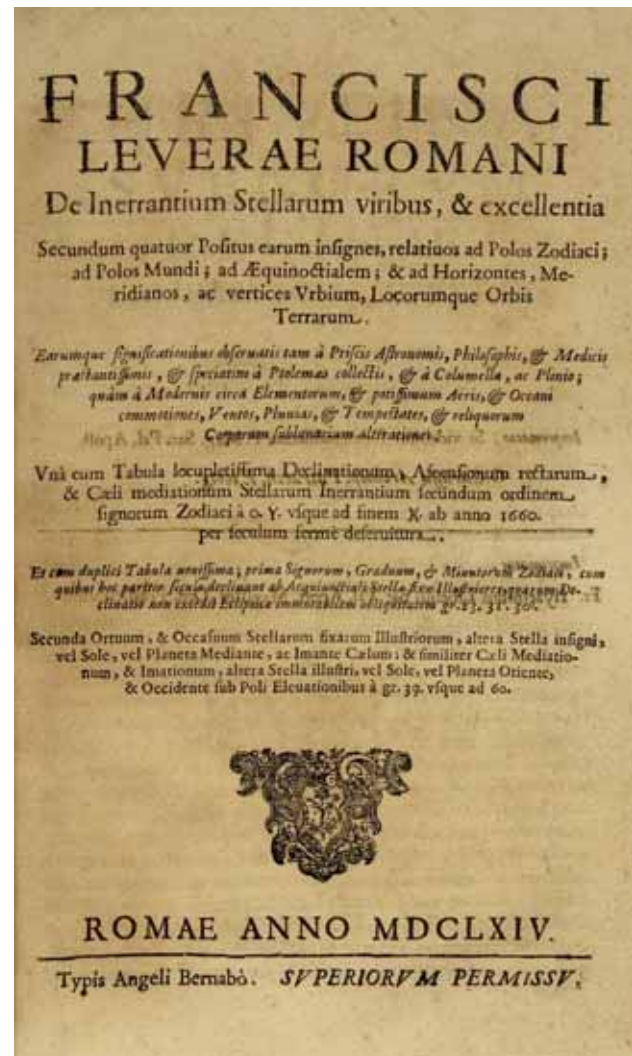 FRANCISCI
LEVERAE ROMANI
De Inerrantium Stellarum viribus, & excellentia
Secundum quatuor Positus earum insignes, relatiuos ad Polos Zodiaci;
ad Polos Mundi; ad Æquinoctialem; & ad Horizontes, Me-
ridianos, ac vertices Vrbium, Locorumque Orbis
Terrarum.
Earumque significationibus obseruatis tam à Priscis Astronomis, Philosophis, & Medicis
præstantissimis, & speciatim à Ptolemæo collectis, & à Columella, ac Plinio;
quàm à Modernis circa Elementorum, & potissimum Aeris, & Oceani
commotiones, Ventos, Pluuias, & Tempestates, & reliquorum
Corporum sublunarium alterationes.
Vnà cum Tabula locupletissima Declinationum, Ascensionum rectarum,
& Cæli mediationum Stellarum Inerrantium secundum ordinem
signorum Zodiaci à 0. ♈. vsque ad finem ♓. ab anno 1660.
per seculum fermè deseruitura.
Et cum duplici Tabula nouissima; prima Signorum, Graduum, & Minutorum Zodiaci, cum
quibus hoc pariter seculo declinant ab Aequinoctiali Stellæ fixæ Illustriores, quarum De-
clinatio non excedit Eclipticæ immutabilem obliquitatem gr. 23. 31. 30.
Secunda Ortuum, & Occasuum Stellarum fixarum Illustriorum, altera Stella insigni,
vel Sole, vel Planeta Mediante, ac Imante Cælum; & similiter Cæli Mediatio-
num, & Imationum, altera Stella illustri, vel Sole, vel Planeta Oriente,
& Occidente sub Poli Eleuationibus à gr. 39. vsque ad 60.
ROMAE ANNO MDCLXIV.
Typis Angeli Bernabò. SVPERIORVM PERMISSV.